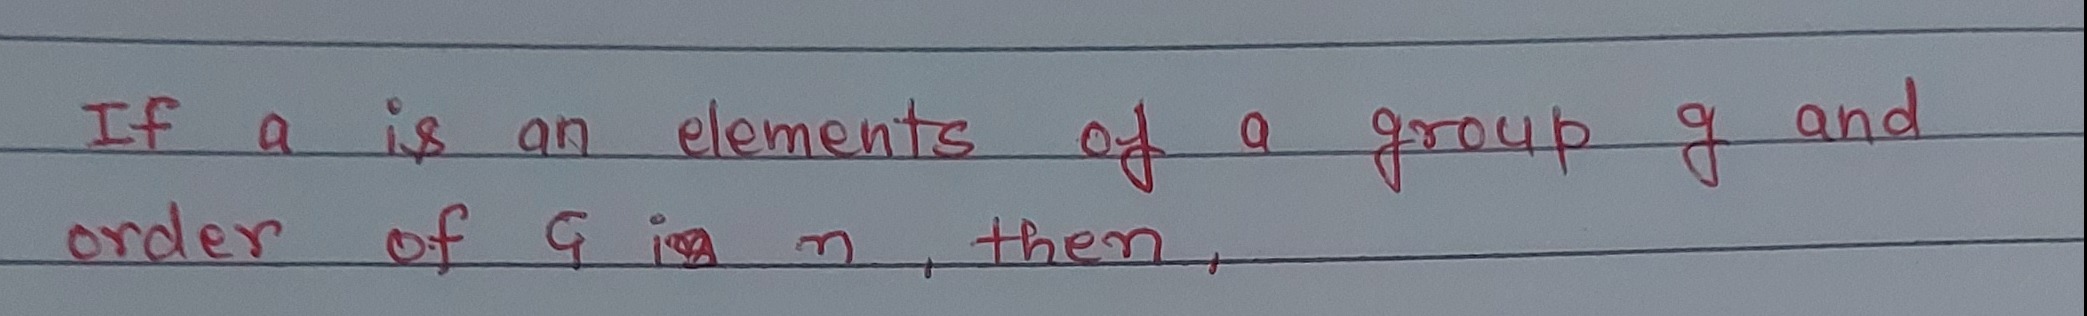 If a is an elements of a group g and
order of G is n, then,